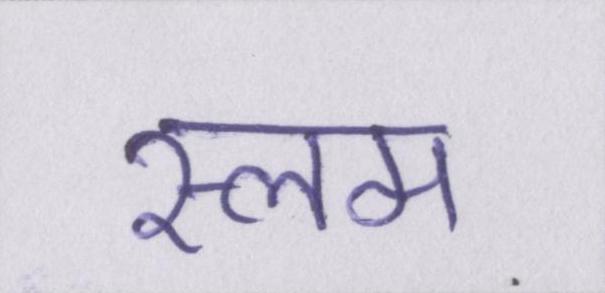 स्लम